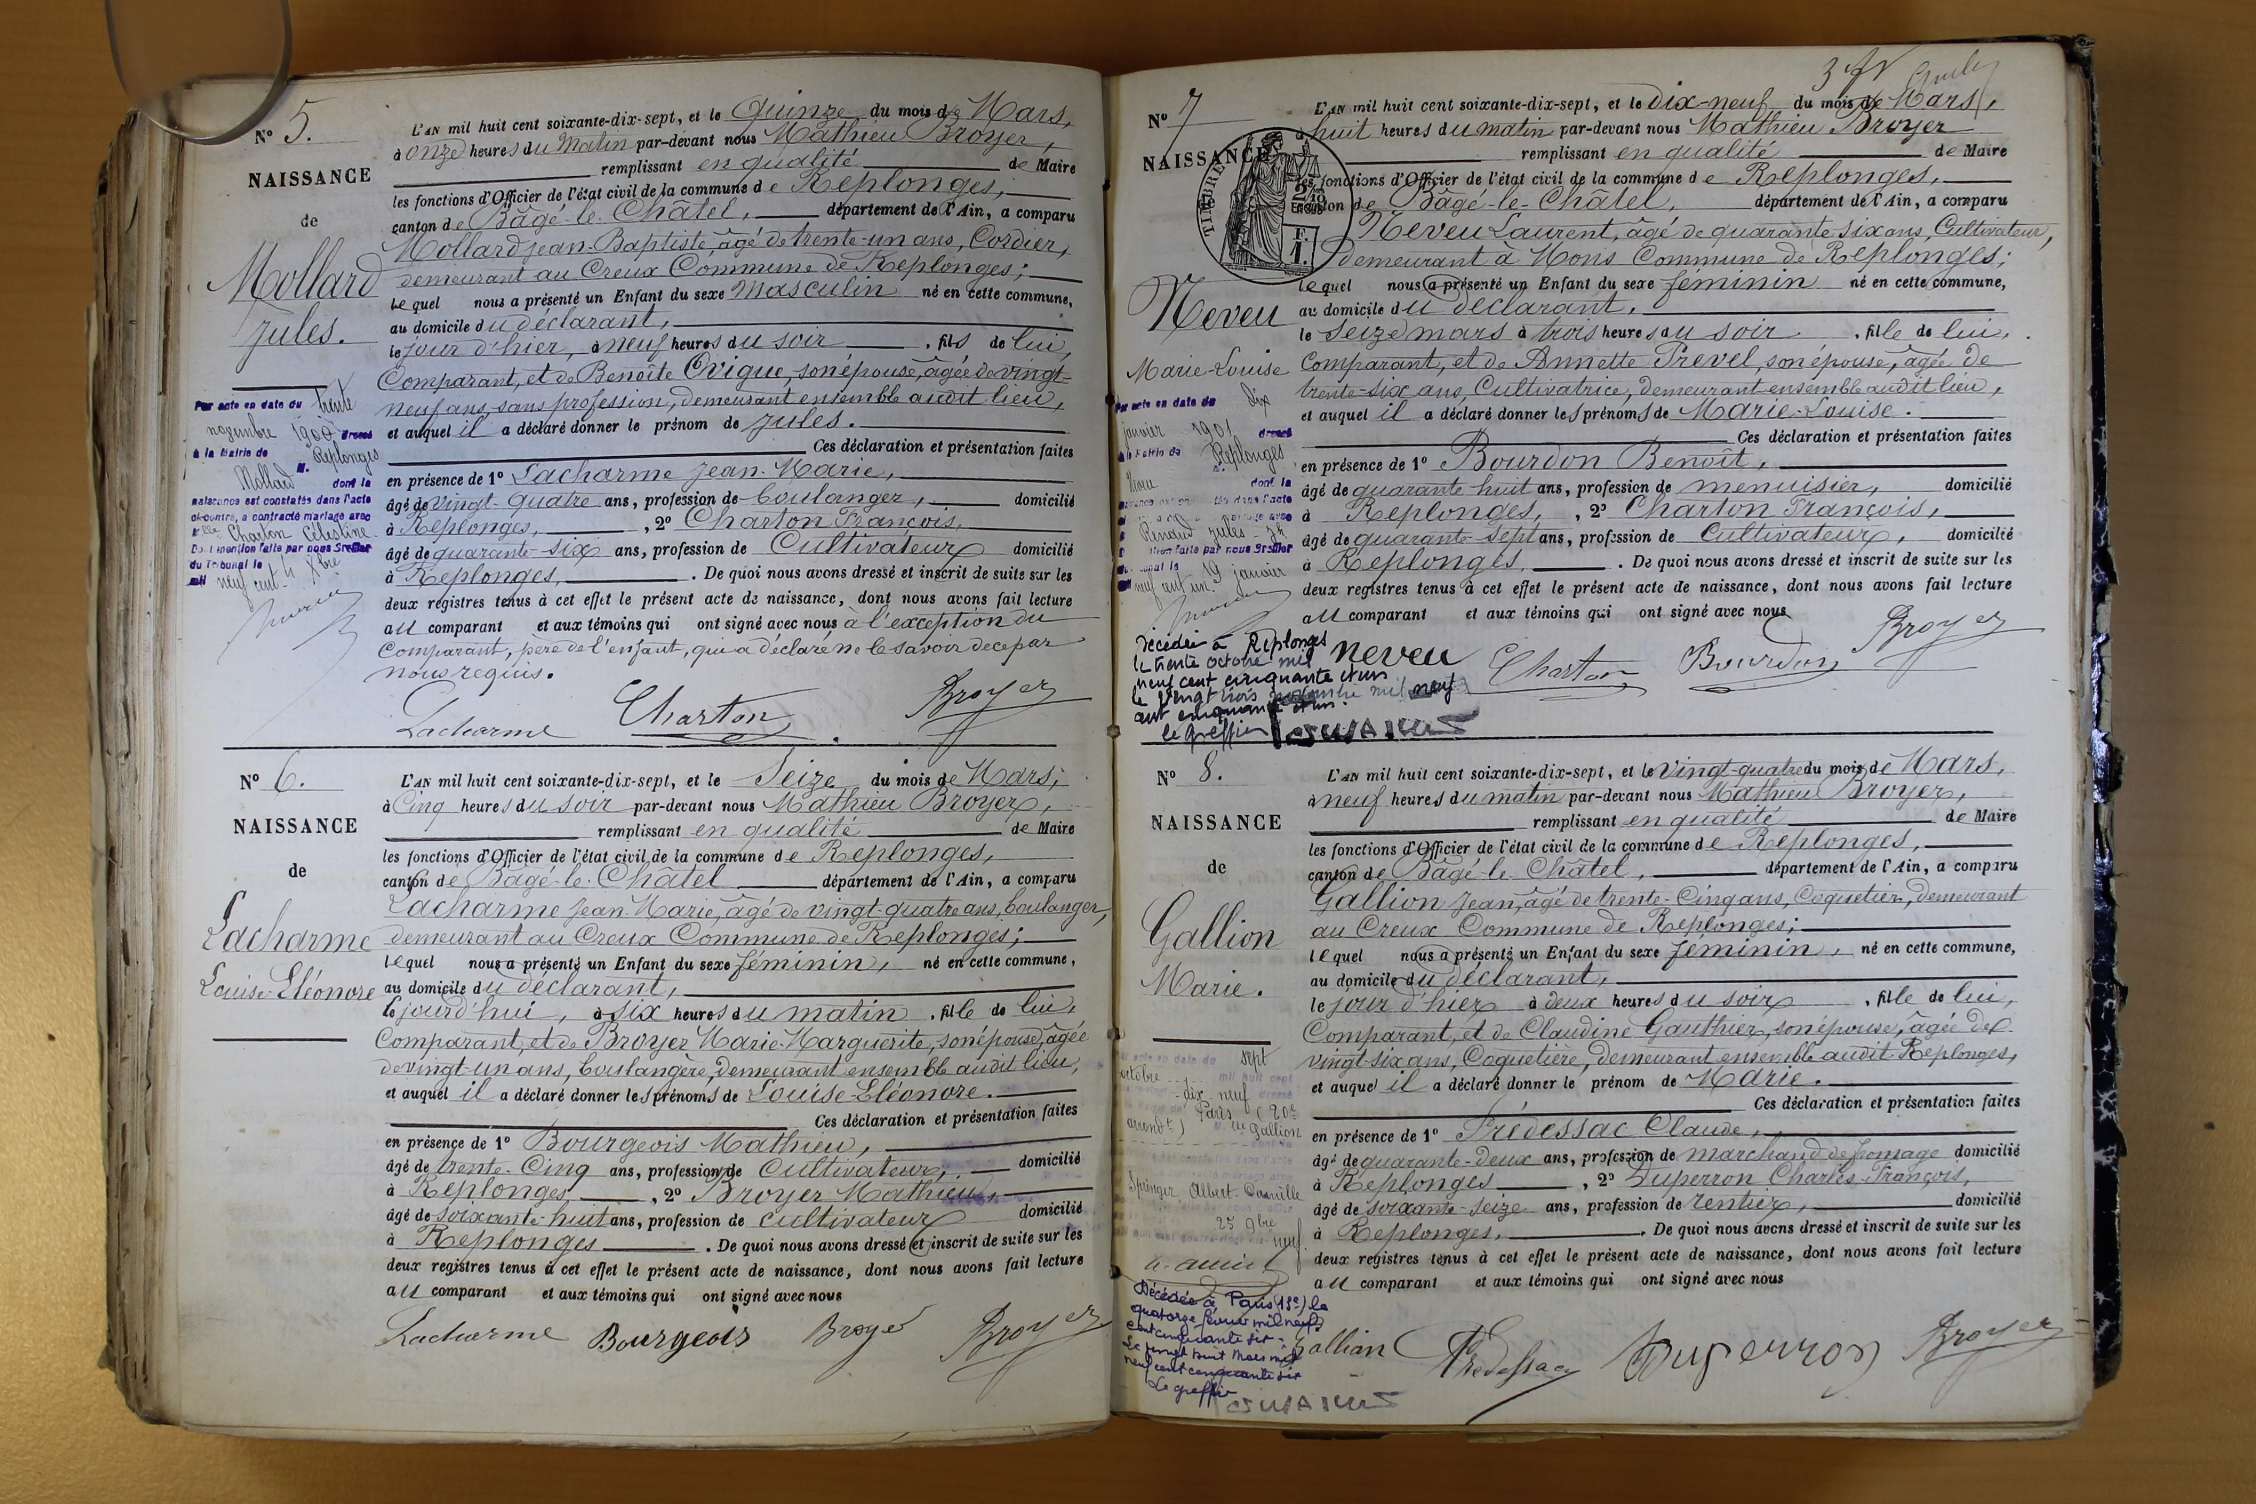 No 5.
NAISSANCE
de
Mollard
Jules.
Par acte en date du trente
novembre 1900 dressé
à la Mairie de Replonges
M. Mollard dont la
naissance est constatée dans l'acte
ci-contre, a contracté mariage avec
Charton Célestine
Dont mention faite par nous Greffier
du Tribunal le
mil neuf cent
L'AN mil huit cent soixante-dix-sept, et le Quinze du mois de Mars,
à onze heures du Matin par-devant nous Mathieu Broyer,
remplissant en qualité de Maire
les fonctions d'Officier de l'état civil de la commune de Replonges,
canton de Bâgé-le-Châtel, département de l'Ain, a comparu
Mollard Jean-Baptiste âgé de trente-un ans, Cordier,
demeurant au Creux Commune de Replonges;
lequel nous a présenté un Enfant du sexe Masculin né en cette commune,
au domicile du déclarant,
le jour d'hier, à neuf heures du soir, fils de lui,
Comparant, et de Benoîte Ovigue, son épouse, âgée de vingt-
neuf ans, sans profession, demeurant ensemble audit lieu,
et auquel il a déclaré donner le prénom de Jules.
Ces déclaration et présentation faites
en présence de 1º Lacharme Jean-Marie,
âgé de vingt-quatre ans, profession de boulanger, domicilié
à Replonges, 2º Charton François,
âgé de quarante-six ans, profession de Cultivateur domicilié
à Replonges, . De quoi nous avons dressé et inscrit de suite sur les
deux registres tenus à cet effet le présent acte de naissance, dont nous avons fait lecture
au comparant et aux témoins qui ont signé avec nous à l'exception du
Comparant, père de l'enfant, qui a déclaré ne le savoir de ce par
nous requis.
Lacharme Charton Broyer
No 6.
NAISSANCE
de
Lacharme
Louise-Eléonore
L'AN mil huit cent soixante-dix-sept, et le Seize du mois de Mars,
à Cinq heures du soir par-devant nous Mathieu Broyer,
remplissant en qualité de Maire
les fonctions d'Officier de l'état civil de la commune de Replonges,
canton de Bâgé-le-Châtel département de l'Ain, a comparu
Lacharme Jean-Marie, âgé de vingt-quatre ans, boulanger,
demeurant au Creux Commune de Replonges;
lequel nous a présenté un Enfant du sexe féminin, né en cette commune,
au domicile du déclarant,
le jourd'hui, à six heures du matin, fille de lui,
Comparant, et de Broyer Marie-Marguerite, son épouse, âgée
de vingt-un ans, boulangère, demeurant ensemble audit lieu,
et auquel il a déclaré donner les prénoms de Louise-Eléonore.
Ces déclaration et présentation faites
en présence de 1º Bourgeois Mathieu,
âgé de trente-Cinq ans, profession de Cultivateur, domicilié
à Replonges, 2º Broyer Mathieu,
âgé de soixante-huit ans, profession de cultivateur domicilié
à Replonges . De quoi nous avons dressé et inscrit de suite sur les
deux registres tenus à cet effet le présent acte de naissance, dont nous avons fait lecture
au comparant et aux témoins qui ont signé avec nous
Lacharme Bourgeois Broyer Broyer
No 7
NAISSANCE
TIMBRE
Neveu
Marie-Louise
Par acte en date du dix
janvier 1901 dressé
à la Mairie de Replonges
dont la
Renaud Jules
faite par nous Greffier
neuf cent un 19 janvier
Décédée à Replonges
le trente octobre mil
neuf cent cinquante et un
le vingt trois mil neuf
cent cinquante et un.
le greffier
L'AN mil huit cent soixante-dix-sept, et le Dix-neuf du mois de Mars,
à huit heures du matin par-devant nous Mathieu Broyer
remplissant en qualité de Maire
les fonctions d'Officier de l'état civil de la commune de Replonges,
canton de Bâgé-le-Châtel, département de l'Ain, a comparu
Neveu Laurent, âgé de quarante six ans, Cultivateur,
demeurant à Mons Commune de Replonges;
lequel nous a présenté un Enfant du sexe féminin né en cette commune,
au domicile du déclarant,
le seize mars à trois heures du soir, fille de lui,
Comparant, et de Annette Prevel, son épouse, âgée de
trente-six ans, Cultivatrice, demeurant ensemble audit lieu,
et auquel il a déclaré donner les prénoms de Marie-Louise.
Ces déclaration et présentation faites
en présence de 1º Bourdon Benoît,
âgé de quarante huit ans, profession de menuisier, domicilié
à Replonges, 2º Charton François,
âgé de quarante-sept ans, profession de Cultivateur, domicilié
à Replonges, . De quoi nous avons dressé et inscrit de suite sur les
deux registres tenus à cet effet le présent acte de naissance, dont nous avons fait lecture
au comparant et aux témoins qui ont signé avec nous
neveu Charton Bourdon Broyer
No 8.
NAISSANCE
de
Gallion
Marie.
sept
octobre mil huit cent
dix neuf
Paris (20e
arrondt) Gallion
Springer Albert
25 9bre
neuf
Décédée à Paris (13e) le
quatorze février mil neuf
cent cinquante six
Le huit Mars mil
neuf cent cinquante six
Le greffier
L'AN mil huit cent soixante-dix-sept, et le Vingt-quatre du mois de Mars,
à neuf heures du matin par-devant nous Mathieu Broyer,
remplissant en qualité de Maire
les fonctions d'Officier de l'état civil de la commune de Replonges,
canton de Bâgé-le-Châtel, département de l'Ain, a comparu
Gallion Jean, âgé de trente-Cinq ans, Coquetier, demeurant
au Creux Commune de Replonges;
lequel nous a présenté un Enfant du sexe féminin, né en cette commune,
au domicile du déclarant,
le jour d'hier à deux heures du soir, fille de lui,
Comparant, et de Claudine Gauthier, son épouse, âgée de
vingt-six ans, Coquetière, demeurant ensemble audit Replonges,
et auquel il a déclaré donner le prénom de Marie.
Ces déclaration et présentation faites
en présence de 1º Prédessac Claude,
âgé de quarante-deux ans, profession de marchand de fromage domicilié
à Replonges, 2º Duperron Charles-François,
âgé de soixante-seize ans, profession de rentier, domicilié
à Replonges, . De quoi nous avons dressé et inscrit de suite sur les
deux registres tenus à cet effet le présent acte de naissance, dont nous avons fait lecture
au comparant et aux témoins qui ont signé avec nous
Gallian Prédessac Duperron Broyer